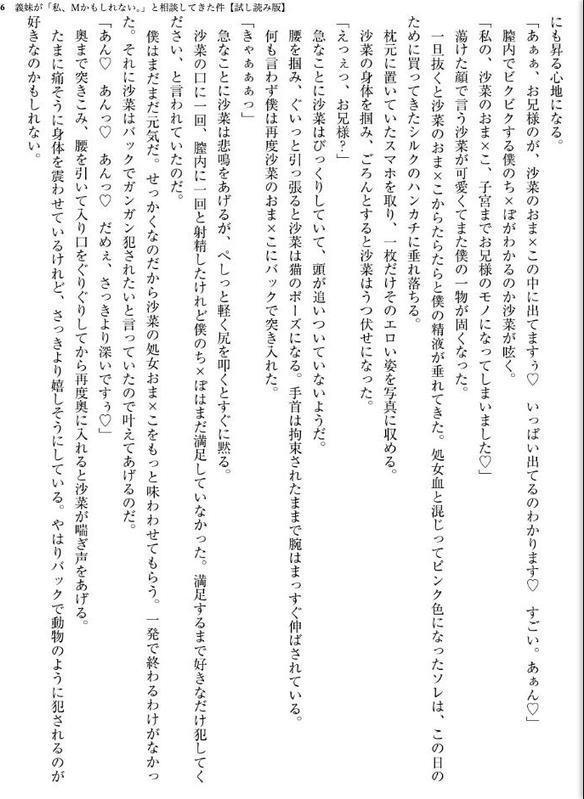 6 義妹が「私、Mかもしれない。」と相談してきた件【試し読み版】
にも昇る心地になる。
「あぁぁ、お兄様のが、沙菜のおま×この中に出てますぅ♡ いっぱい出てるのわかります♡ すごい。あぁん♡」
膣内でビクビクする僕のち×ぽがわかるのか沙菜が呟く。
「私の、沙菜のおま×こ、子宮までお兄様のモノになってしまいました♡」
蕩けた顔で言う沙菜が可愛くてまた僕の一物が固くなった。
一旦抜くと沙菜のおま×こからたらたらと僕の精液が垂れてきた。処女血と混じってピンク色になったソレは、この日の
ために買ってきたシルクのハンカチに垂れ落ちる。
枕元に置いていたスマホを取り、一枚だけそのエロい姿を写真に収める。
沙菜の身体を掴み、ごろんとすると沙菜はうつ伏せになった。
「えっぇっ、お兄様?」
急なことに沙菜はびっくりしていて、頭が追いついていないようだ。
腰を掴み、ぐいっと引っ張ると沙菜は猫のポーズになる。手首は拘束されたままで腕はまっすぐ伸ばされている。
何も言わず僕は再度沙菜のおま×こにバックで突き入れた。
「きゃぁぁぁっ」
急なことに沙菜は悲鳴をあげるが、ぺしっと軽く尻を叩くとすぐに黙る。
沙菜の口に一回、膣内に一回と射精したけれど僕のち×ぽはまだ満足していなかった。満足するまで好きなだけ犯してく
ださい、と言われていたのだ。
僕はまだまだ元気だ。せっかくなのだから沙菜の処女おま×こをもっと味わわせてもらう。一発で終わるわけがなかっ
た。それに沙菜はバックでガンガン犯されたいと言っていたので叶えてあげるのだ。
「あん♡ あんっ♡ あんっ♡ だめぇ、さっきより深いですぅ♡」
奥まで突きこみ、腰を引いて入り口をぐりぐりしてから再度奥に入れると沙菜が喘ぎ声をあげる。
たまに痛そうに身体を震わせているけれど、さっきより嬉しそうにしている。やはりバックで動物のように犯されるのが
好きなのかもしれない。